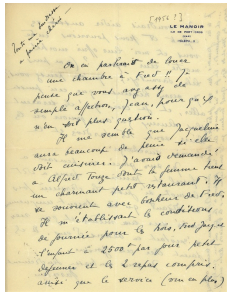 [1956 ?]
LE MANOIR
ILE DE PORT-CROS
(VAR)
On en parlerait de louer
une chambre à Fred !! Je
pense que vous avez de
simple affection, Jean, pour qu'il
n'en soit plus question.
Il me semble que Jacqueline
aura beaucoup de peine si elle
doit cuisiner. J'avais demandé
à Alfred dont la femme tient
un charmant petit restaurant. Il
se souvient avec bonheur de Fred,
Il m'établissait les conditions
de journée pour les trois, Fred Jacque
l'enfant à 2500 f par jour petit
déjeuner et les 2 repas compris,
ainsi que le service (vin en plus)